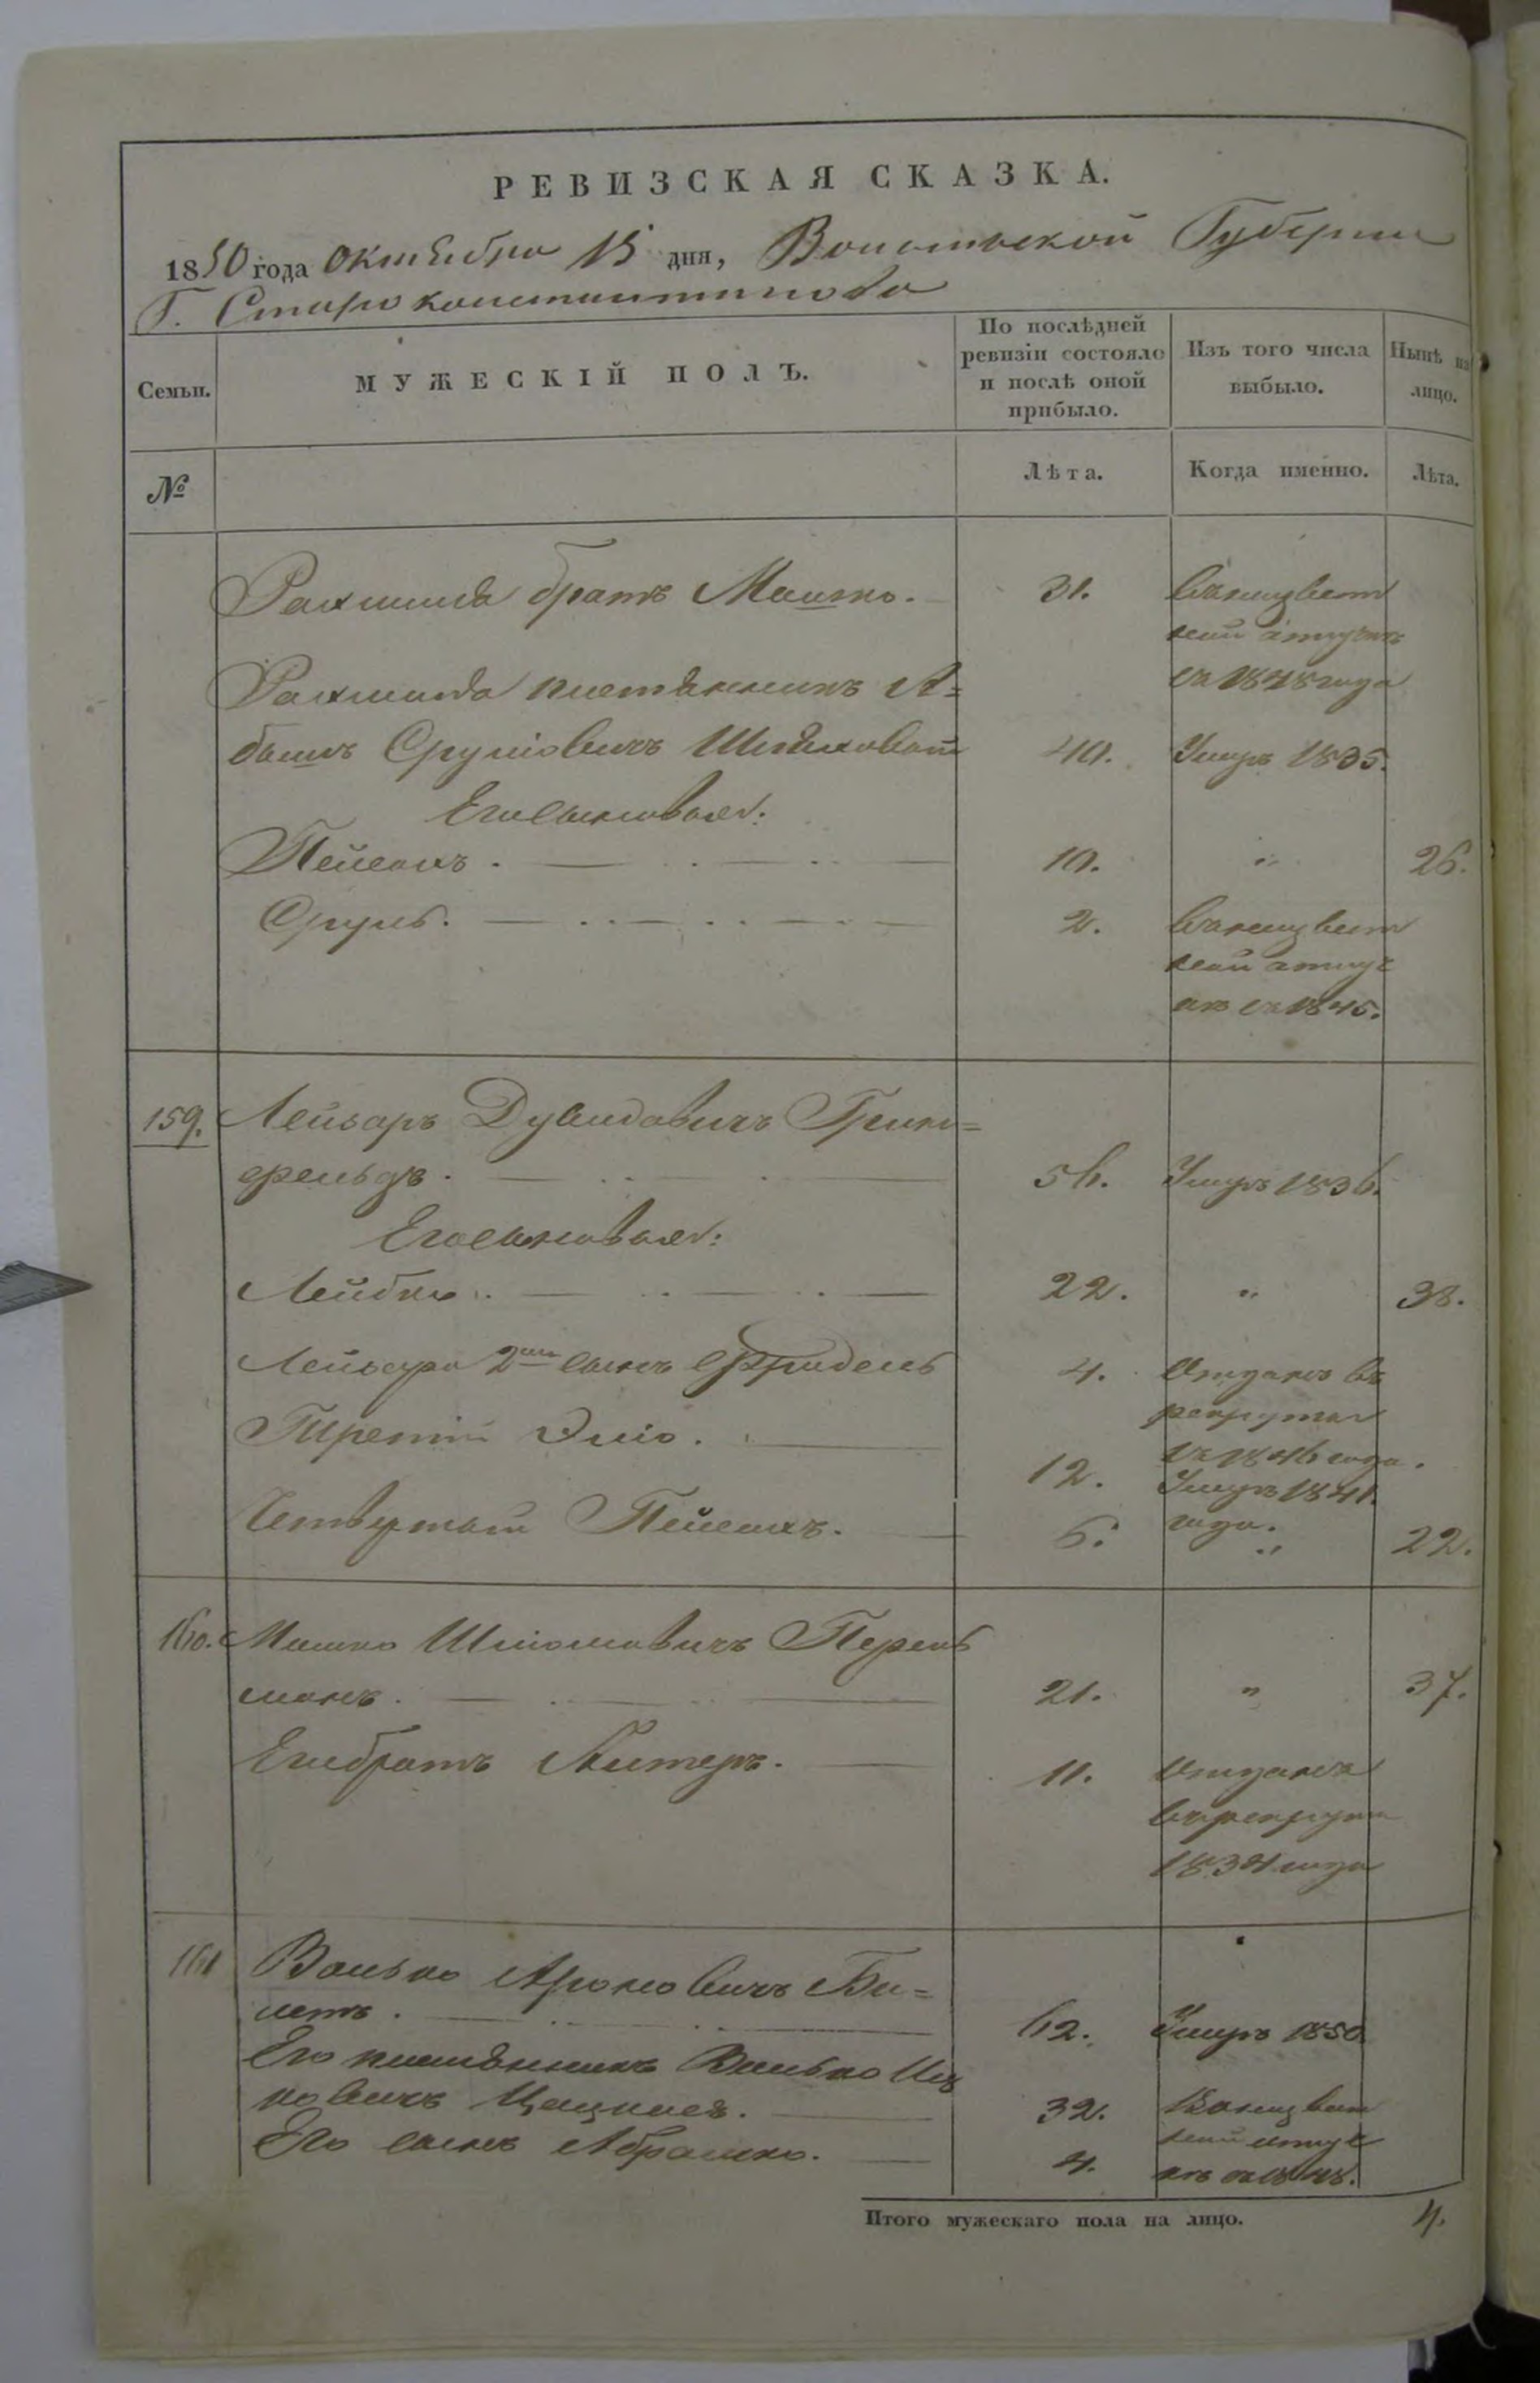 РЕВИЗСКАЯ СКАЗКА.
1850 года Октября 15 дня, Волынской Губернии
Г. Староконстантинова
Семьи.
МУЖЕСКІЙ ПОЛЪ.
По послѣдней ревизіи состояло и послѣ оной прибыло.
Изъ того числа выбыло.
Нынѣ на лицо.
№
Лѣта.
Когда именно.
Лѣта.
Рахмиля братъ Мошко. 31. въ неизвест
ной отлучкѣ
съ 1848 года
Рахмиля племянникъ А=
бамъ Сруліовичъ 40. Умеръ 1835.
Его сыновья:
Пейсахъ. 10. " 26.
Сруль. 2. въ неизвест
ной отлуч
кѣ съ 1845.
159. Лейзаръ Дувидовичъ Грин=
фельдъ. 56. Умеръ 1836.
Его сыновья:
Лейбко. 22. " 38.
Лейзера 2ой сынъ Фридель 4. Отданъ въ
рекруты
въ 1846 года.
Третій Эліо. 12. Умеръ 1841.
года.
Четвертый Пейсахъ. 6. " 22.
160. Мошко Шліомовичъ Перель
манъ. 21. " 37.
Его братъ Алтеръ. 11. Отданъ
въ рекруты
1834 года
161 Волько Ароновичъ Би=
летъ. 62. Умеръ 1850.
Его племянникъ Волько Иц
ковичъ 32. В неизвест
ной отлуч
Его сынъ Абрамко. 4. кѣ съ 1848.
Итого мужескаго пола на лицо. 4.